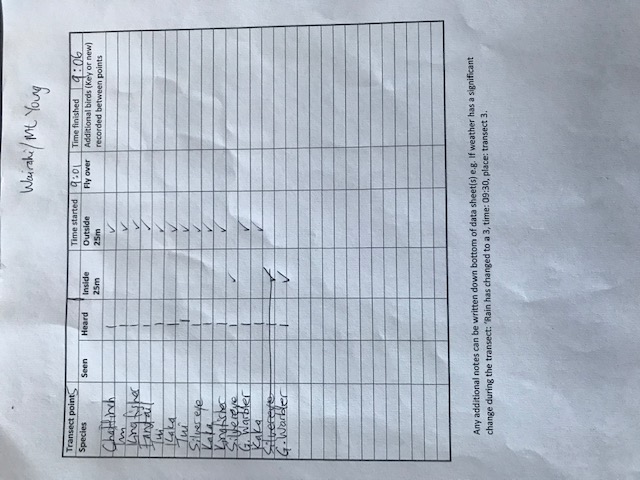 Wairahi/Mt Young
Transect point 5 Time started 9:01 Time finished 9:06
Species Seen Heard Inside 25m Outside 25m Fly over Additional birds (Key or new) recorded between points
Chaffinch | ✓
Tui | ✓
Kingfisher | ✓
Fantail | ✓
Tui | ✓
Kaka | ✓
Tui | ✓
Silvereye | ✓
Kaka | ✓
Kingfisher | ✓
Silvereye | ✓
G. Warbler | ✓
Kaka | ✓
Silvereye | ✓
G. Warbler | ✓
Any additional notes can be written down bottom of data sheet(s) e.g. If weather has a significant
change during the transect: 'Rain has changed to a 3, time: 09:30, place: transect 3.